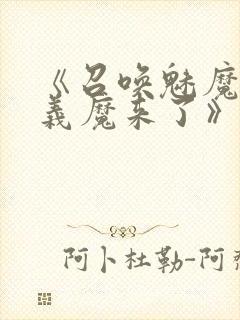 《召唤魅魔
义魔来了》
阿卜杜勒-阿